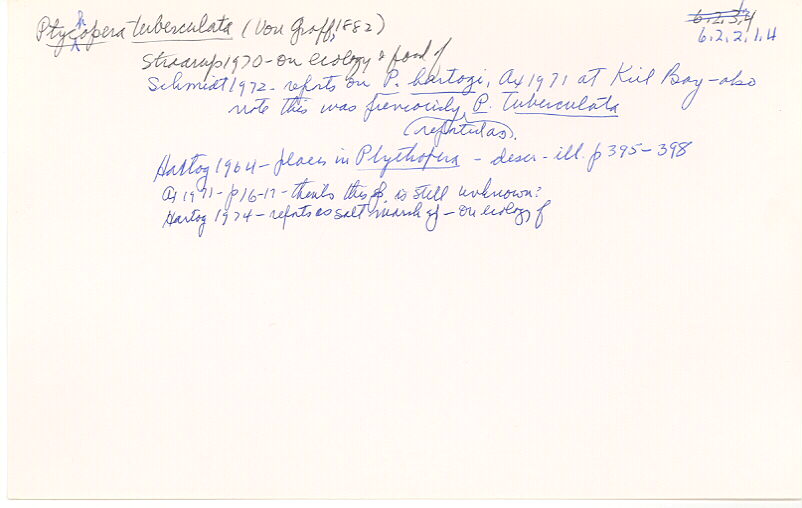 Ptychopera tuberculata (Von Graff, 1882)
6.2.3.4
6.2.2.1.4
Straarup 1970 - on ecology & food of
Schmidt 1972 - reports on P. hartogi, Ax 1971 at Kiel Bay - also
note this was previously P. tuberculata
(reptulas).
Hartog 1964 - places in Plythopera - descr - ill. p 395-398
Ax 1971 - p 16-17 - thinks this sp. is still unknown?
Hartog 1974 - reports as salt marsh sp - on ecology of